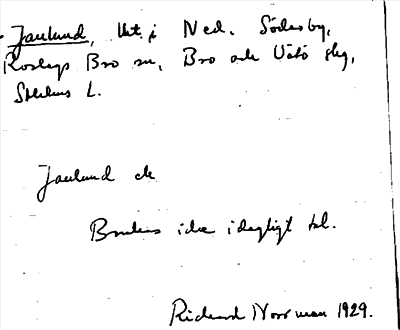 Jaulund, Ut. i Ned. Söderby,
Roslags Bro sn, Bro och Vätö skg,
Sthlms L.
Jaulund
Brukas icke i dagligt tal.
Richard Norrman 1929.